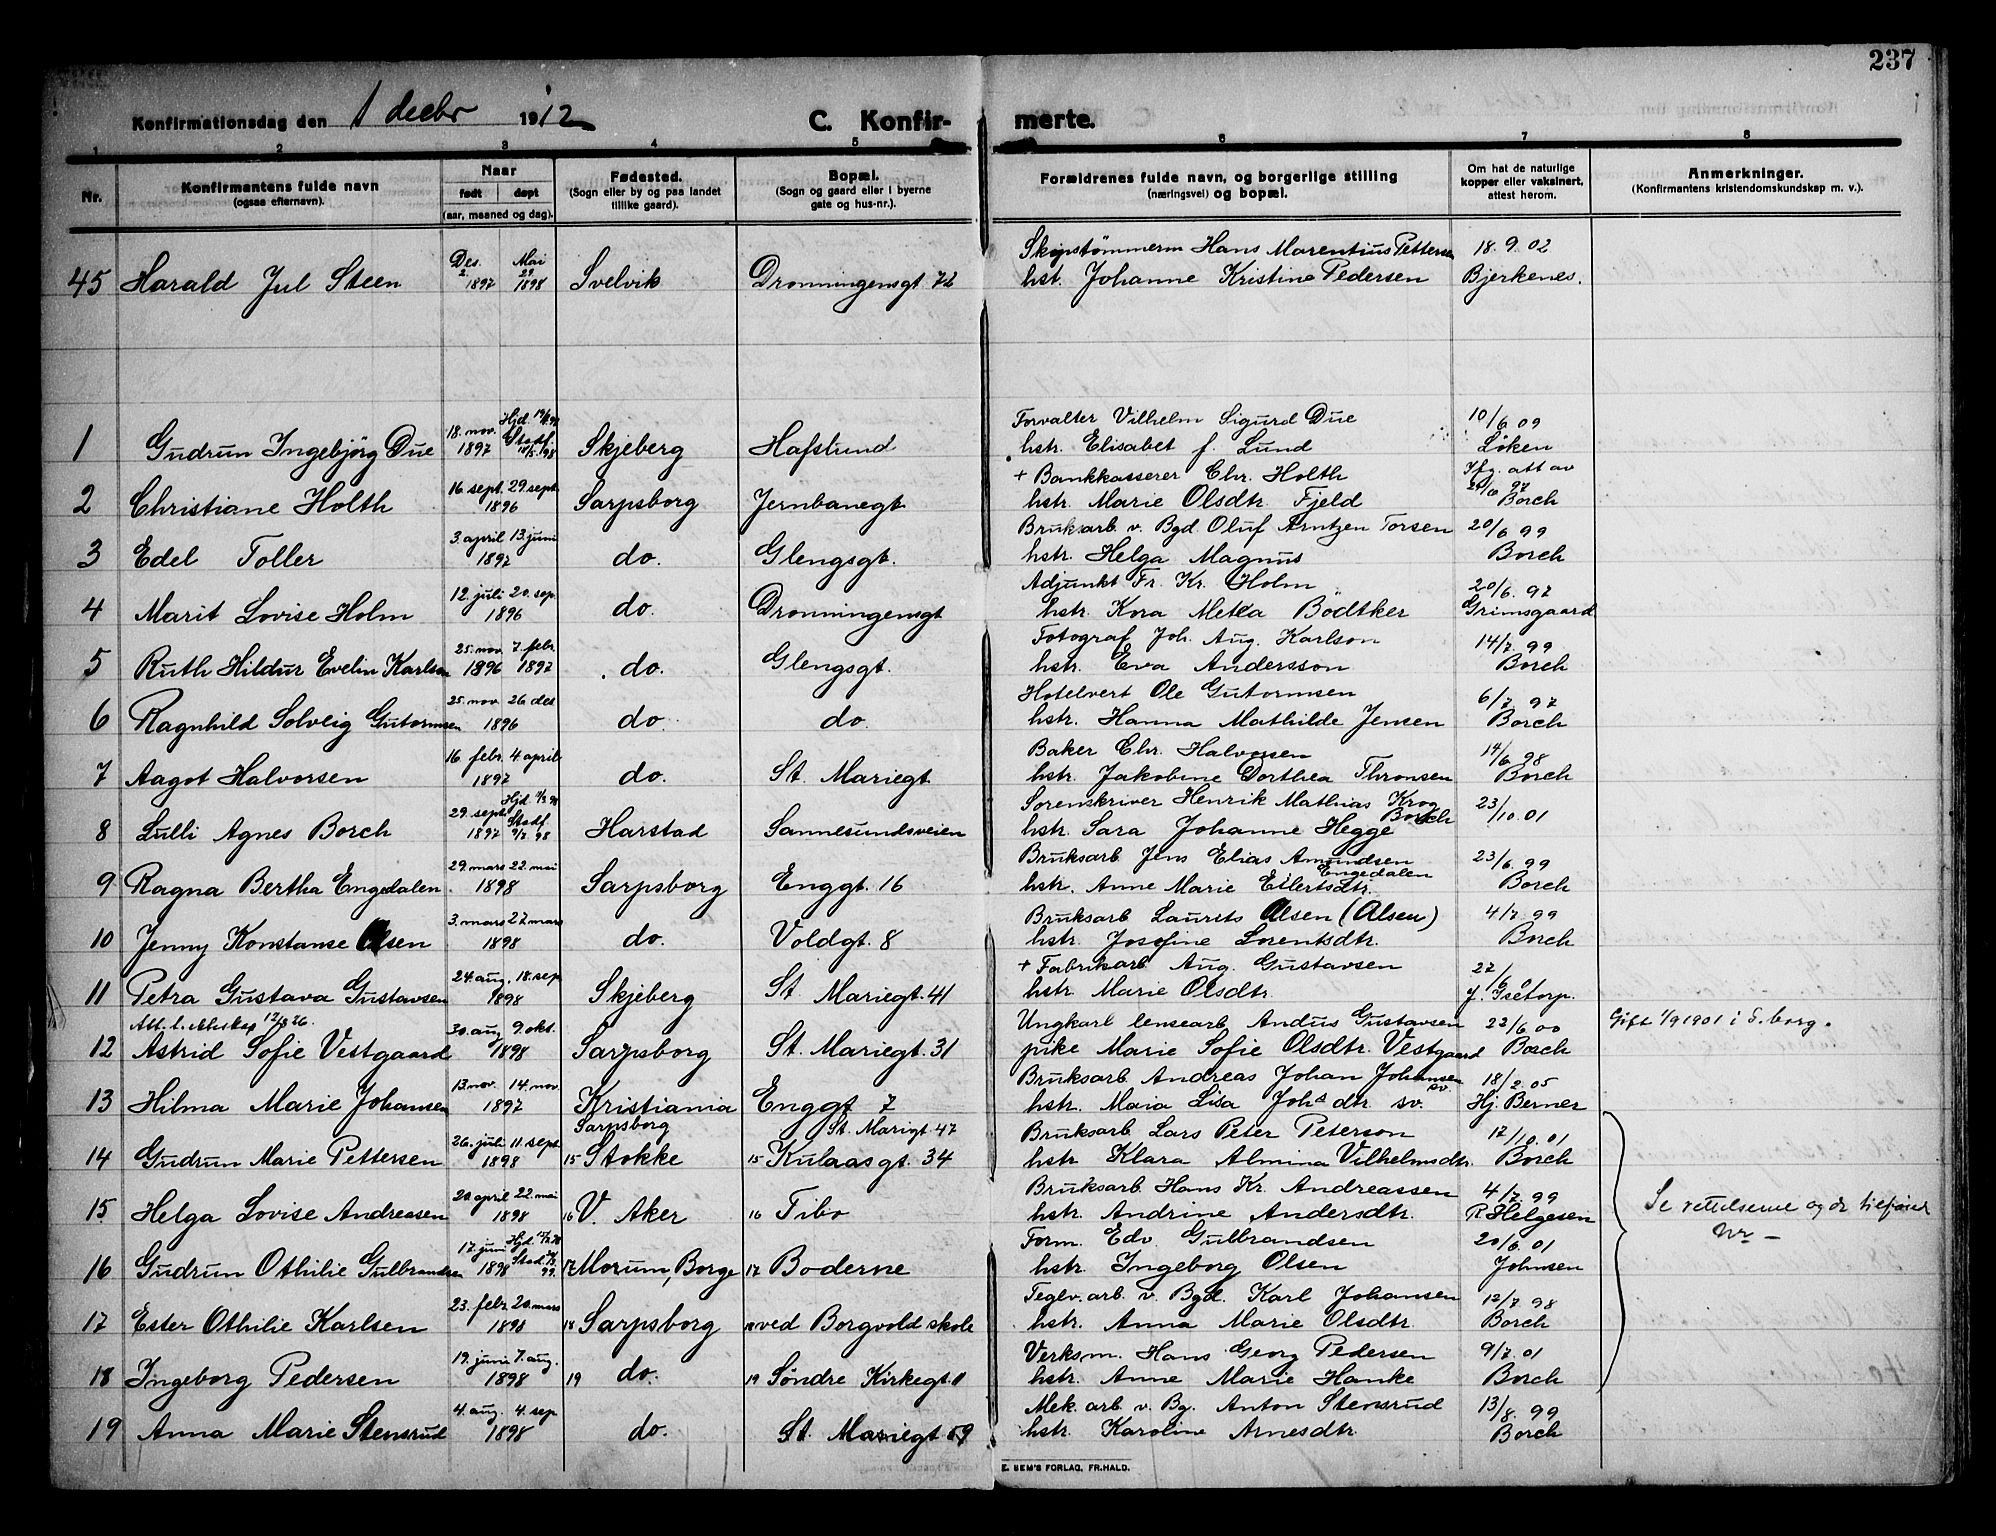 237
Konfirmationsdag den 1 decbr 1912 C. Konfir- merte.
1 2 3 4 5 6 7 8
Nr.
Konfirmantens fulde navn
(ogsaa efternavn).
Naar
født døpt
(aar, maaned og dag).
Fødested.
(Sogn eller by og paa landet
tillike gaard).
Bopæl.
(Sogn og gaard eller i byerne
gate og hus-nr.).
Forældrenes fulde navn, og borgerlige stilling
(næringsvei) og bopæl.
Om hat de naturlige
kopper eller vaksinert,
attest herom.
Anmerkninger.
(Konfirmantens kristendomskundskap m. v.).
Des. Mai Skipstømmerm Hans Marentius Pettersen 18. 9. 02
2 29
45 Harald Jul Steen 1897 1898 Svelvik Dronningensgt. 72 hst. Johanne Kristine Pedersen Bjerkenes.
18. nov. Hjd. Forvalter Vilhelm Sigurd Due 10/6 09
1 Gudrun Ingebjörg Due 1897 Stadf. 18/5 98 Skjeberg Hafslund hstr. Elisabet f. Lund Löken
16 sept. 29. sept. + Bankkasserer Chr. Holth Ifg. att av
2 Christiane Holth 1896 Sarpsborg Jernbanegt. hstr. Marie Olsdtr. Fjeld Borch
3. april 13. juni Bruksarb. v. Bgd. Oluf Arntzen Torsen 20/6 99
3 Edel Toller 1897 do. Glengsgt. hstr. Helga Magnus Borch
12. juli 20. sep. Adjunkt Fr. Kr. Holm 20/6. 97
4 Marit Lovise Holm 1896 do. Dronningensgt hstr. Kora Metta Bödtker Grimsgaard
25. nov. 7. febr. Fotograf Joh. Aug. Karlson 14/7. 99
5 Ruth Hildur Evelin Karlson 1896 1897 do. Glengsgt. hstr. Eva Andersson Borch
25. nov. 26 des Hotelvert Ole Gutormsen 6/7. 97
6 Ragnhild Solveig Gutormsen 1896 do. do. hstr. Hanna Mathilde Jensen Borch
16. febr. 4. april Baker Chr. Halvorsen 14/6. 98
7 Aagot Halvorsen 1897 do. St. Mariegt. hstr. Jakobine Dorthea Thronsen Borch
29. sept. Hjd. Stadf. Sorenskriver Henrik Mathias Krog Borch 23/10. 01
8 Lulli Agnes Borch 1897 9/7. 98 Harstad Sannesundsveien hstr. Sara Johanne Hegge
29. mars 22. mai Bruksarb. Jens Elias Amundsen Engedalen 23/6. 99
9 Ragna Bertha Engedalen 1898 Sarpsborg Enggt. 16 hstr. Anne Marie Eilertsdtr. Borch
3. mars 27. mars Bruksarb Laurits Olsen (Alsen) 4/7. 99
10 Jenny Konstanse Olsen 1898 do. Voldgt. 8 hstr. Josefine Lorentsdtr. Borch
24. aug. 18. sep + Fabrikarb Aug. Gustavsen
11 Petra Gustava Gustavsen 1898 Skjeberg St. Mariegt. 41 hstr. Marie Olsdtr. J. Isetorp.
30. aug 9. okt. Ungkarl lensearb Andus Gustavsen 22/6 00 Gift 1/9 1901 i S.borg.
12 Astrid Sofie Vestgaard 1898 Sarpsborg St. Mariegt. 31 pike Marie Sofie Olsdtr. Vestgaard Borch
13. nov. 14. nov. Bruksarb. Andreas Johan Johansen sv. 18/2. 05
13 Hilma Marie Johansen 1897 Kristiania Enggt 7 hstr. Maia Lisa Johs dtr. sv. Hj. Berner
26. juli 11. sept. Sarpsborg St. Mariegt. 47 Bruksarb. Lars Peter Peterson 12/10. 01
14 Gudrun Marie Pettersen 1898 15 Stokke 15 Kulaasgt. 34 hstr. Klara Almina Vilhelmsdtr. Borch
20. april 22. mai Bruksarb. Hans Kr. Andreassen 4/7. 99
15 Helga Lovise Andreasen 1898 16 V. Aker 16 Tibo hstr. Andrine Andersdtr. R Helgesen Se rettelserne og de tilføiet Nr —
17. juni Hjd. Stad. Form. Edv. Gulbrandsen 20/6. 01
16 Gudrun Othilie Gulbrandsen 1898 99. 17 Morum, Borge 17 Boderne hstr. Ingeborg Olsen Johnsen
23. febr. 20. mars Teglv. arb. v. Bgd. Karl Johansen 12/7 98
17 Ester Othilie Karlsen 1898 18 Sarpsborg 18 ved Borgvold skole hstr. Anna Marie Olsdtr. Borch
19. juni 7. aug. Verksm. Hans Georg Pedersen 9/7. 01
18 Ingeborg Pedersen 1898 19 do. 19 Söndre Kirkegt. 11 hstr. Anne Marie Hanke Borch
4. aug. 4. sep Mek. arb v. Bg. Anton Stensrud 13/8. 99
19 Anna Marie Stensrud 1898 do. St. Mariegt. 59 hstr. Karoline Arnesdtr. Borch
E. SEM'S FORLAG, FR.HALD.